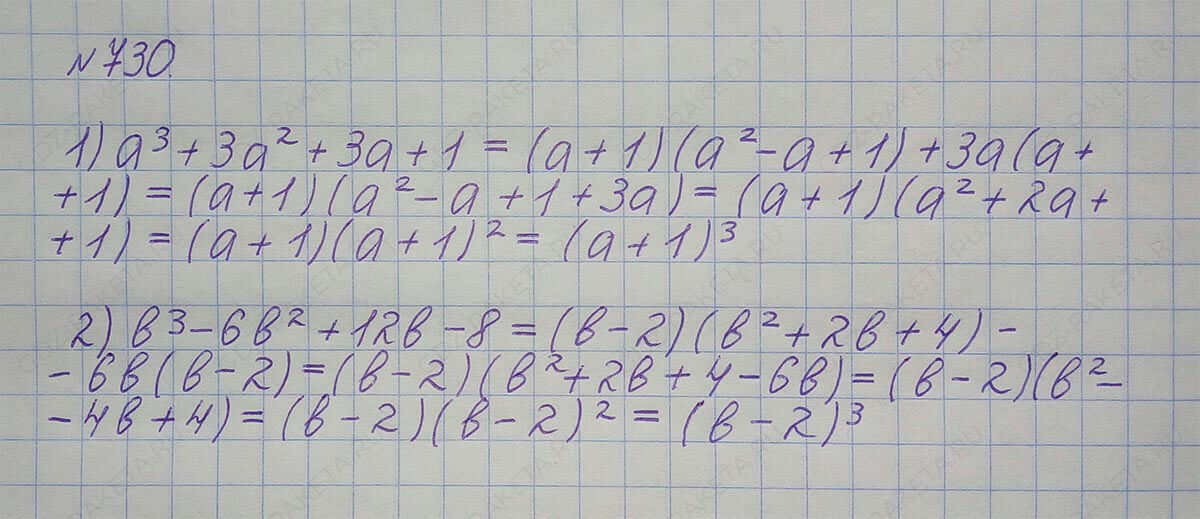 №730.
1) a³ + 3a² + 3a + 1 = (a + 1)(a² - a + 1) + 3a(a +
+ 1) = (a + 1)(a² - a + 1 + 3a) = (a + 1)(a² + 2a +
+ 1) = (a + 1)(a + 1)² = (a + 1)³
2) в³ - 6в² + 12в - 8 = (в - 2)(в² + 2в + 4) -
- 6в(в - 2) = (в - 2)(в² + 2в + 4 - 6в) = (в - 2)(в² -
- 4в + 4) = (в - 2)(в - 2)² = (в - 2)³